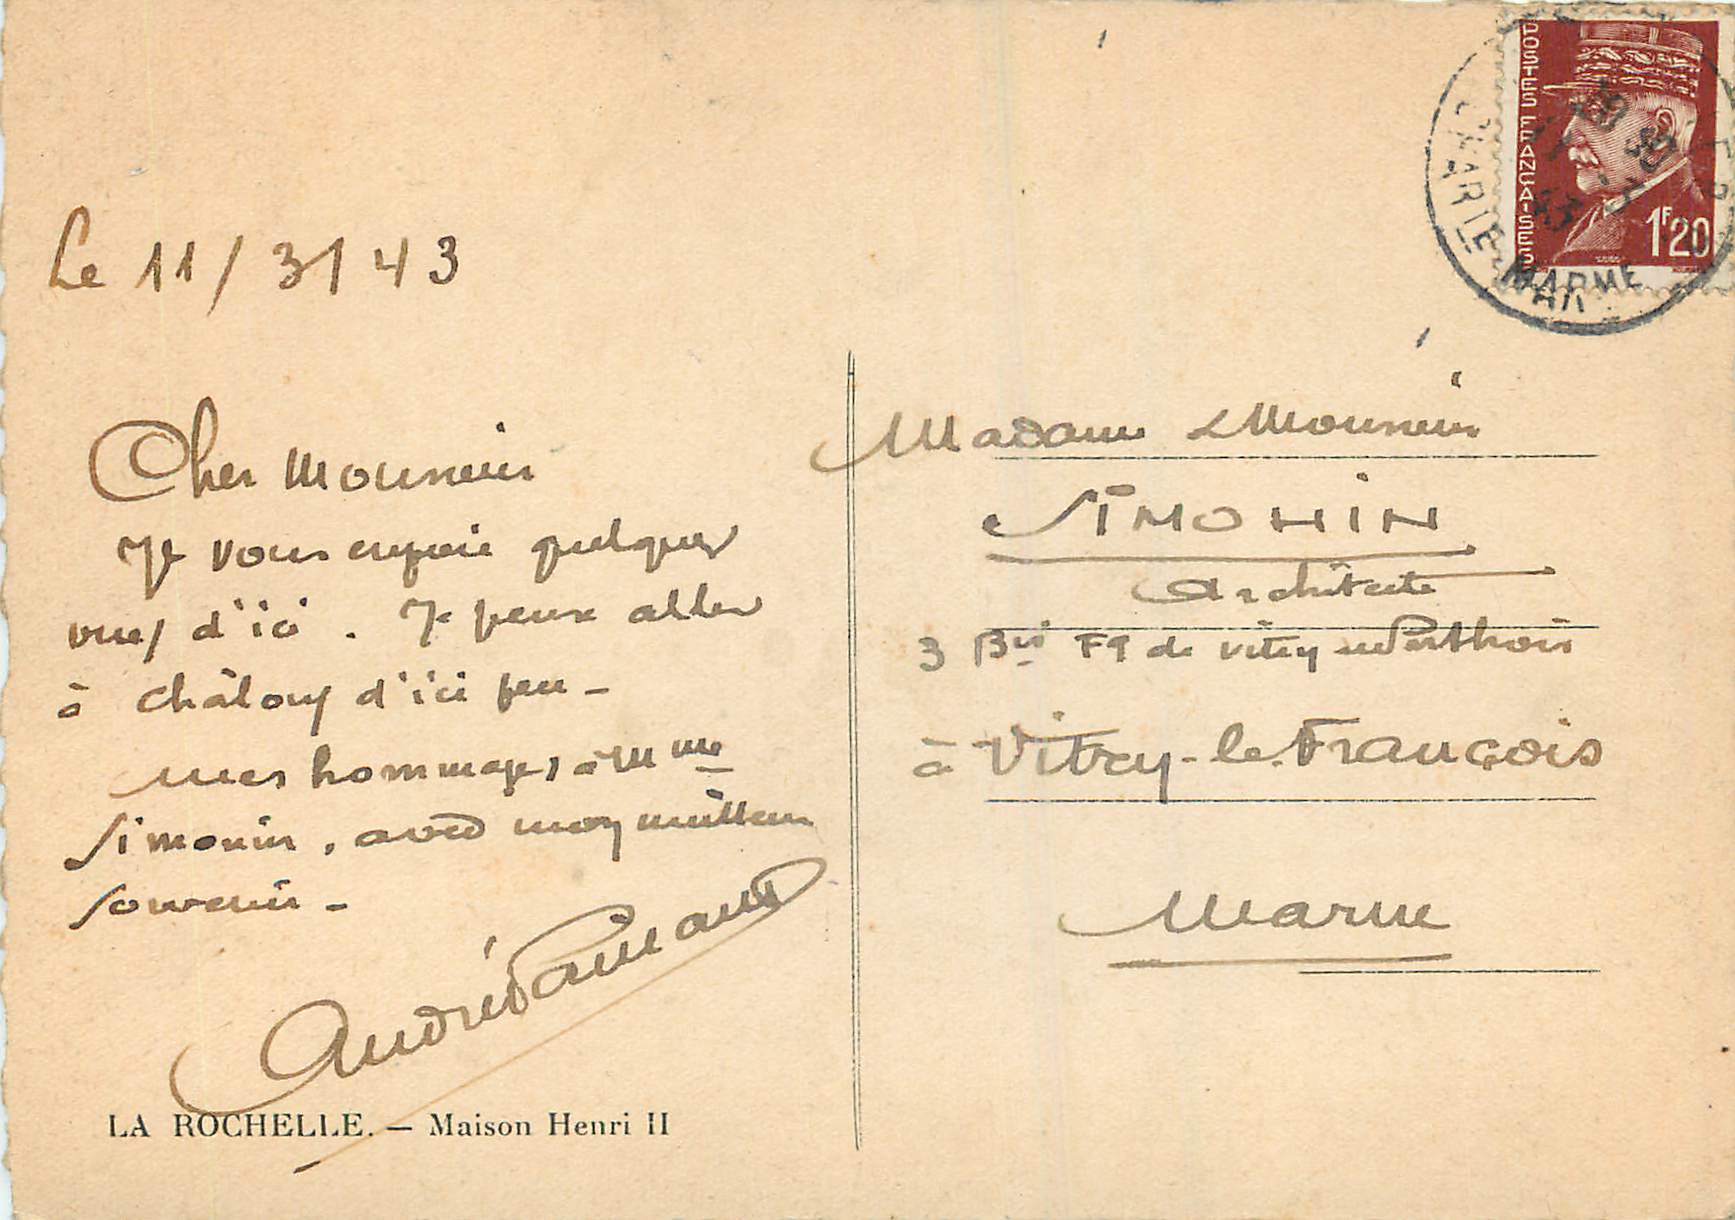 Le 11/3/43
Cher Monsieur
Je vous envoie quelques
vues d'ici. Je peux aller
à Châlons d'ici peu -
Mes hommages à Mme
Simonin, avec mon meilleur
souvenir -
André
LA ROCHELLE. — Maison Henri II
POSTES FRANÇAISES
1F20
MARNE
Madame & Monsieur
SIMONIN
Architecte
3 Bis Fg de Vitry en Perthois
à Vitry-le-François
Marne